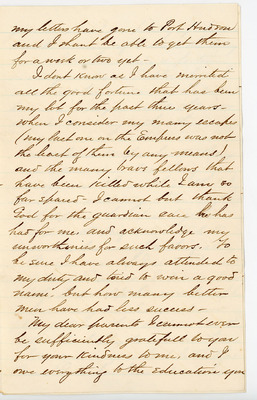 my letters have gone to Port Hudson
and I shant be able to get them
for a week or two yet-
I dont know as I have merited
all the good fortune that has been
my lot for the past three years-
when I consider my many escapes
(my last one on the Empress was not
the least of them by any means)
and the many brave fellows that
have been killed while I am so
far spared- I cannot but thank
God for the guardian care he has
had for me. and acknowledge my
unworthiness for such favors. To
be sure I have always attended to
my duty and tried to win a good
name. but how many better
men have had less success-
My dear parents I cannot ever
be sufficiently gratefull to you
for your kindness to me, and I
owe everything to the education you